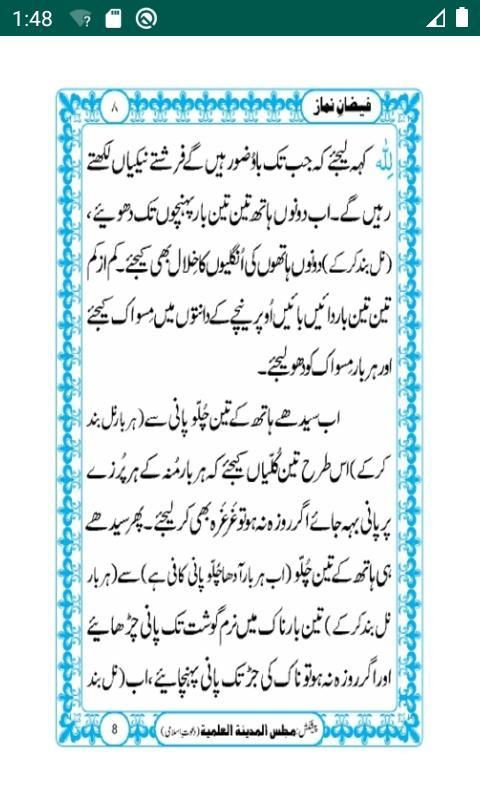 1:48
فیضانِ نماز
۸
لِلّٰہ کہہ لیجئے کہ جب تک باوُضو رہیں گے فرشتے نیکیاں لکھتے
رہیں گے۔ اب دونوں ہاتھ تین تین بار پہنچوں تک دھوئیے،
(نل بند کرکے) دونوں ہاتھوں کی اُنگلیوں کا خِلال بھی کیجئے۔ کم از کم
تین تین بار دائیں بائیں اُوپر نیچے کے دانتوں میں مِسواک کیجئے
اور ہر بار مِسواک کو دھو لیجئے۔
اب سیدھے ہاتھ کے تین چُلّو پانی سے (ہر بار نل بند
کرکے) اس طرح تین کُلّیاں کیجئے کہ ہر بار مُنہ کے ہر پُرزے
پر پانی بہہ جائے اگر روزہ نہ ہو تو غَرغَرہ بھی کر لیجئے۔ پھر سیدھے
ہی ہاتھ کے تین چُلّو (اب ہر بار آدھا چُلّو پانی کافی ہے) سے (ہر بار
نل بند کرکے) تین بار ناک میں نرم گوشت تک پانی چڑھائیے
اور اگر روزہ نہ ہو تو ناک کی جڑ تک پانی پہنچائیے، اب (نل بند
پیشکش: مجلس المدینۃ العلمیۃ (دعوتِ اسلامی)
8